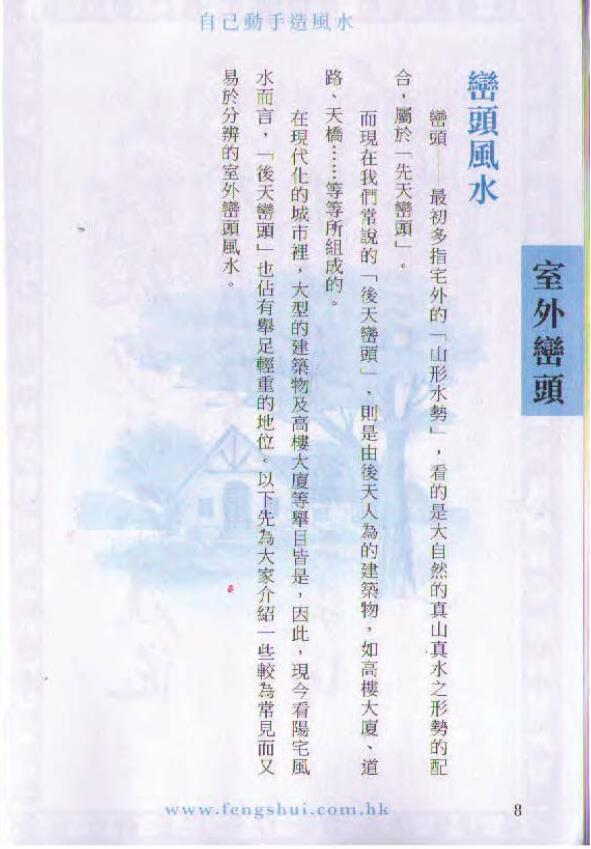 自己動手造風水
室外巒頭
巒頭風水
巒頭——最初多指宅外的「山形水勢」，看的是大自然的真山真水之形勢的配
合，屬於「先天巒頭」。
而現在我們常說的「後天巒頭」，則是由後天人為的建築物，如高樓大廈、道
路、天橋……等等所組成的。
在現代化的城市裡，大型的建築物及高樓大廈等舉目皆是，因此，現今看陽宅風
水而言，「後天巒頭」也佔有舉足輕重的地位。以下先為大家介紹一些較為常見而又
易於分辨的室外巒頭風水。
www.fengshui.com.hk
8